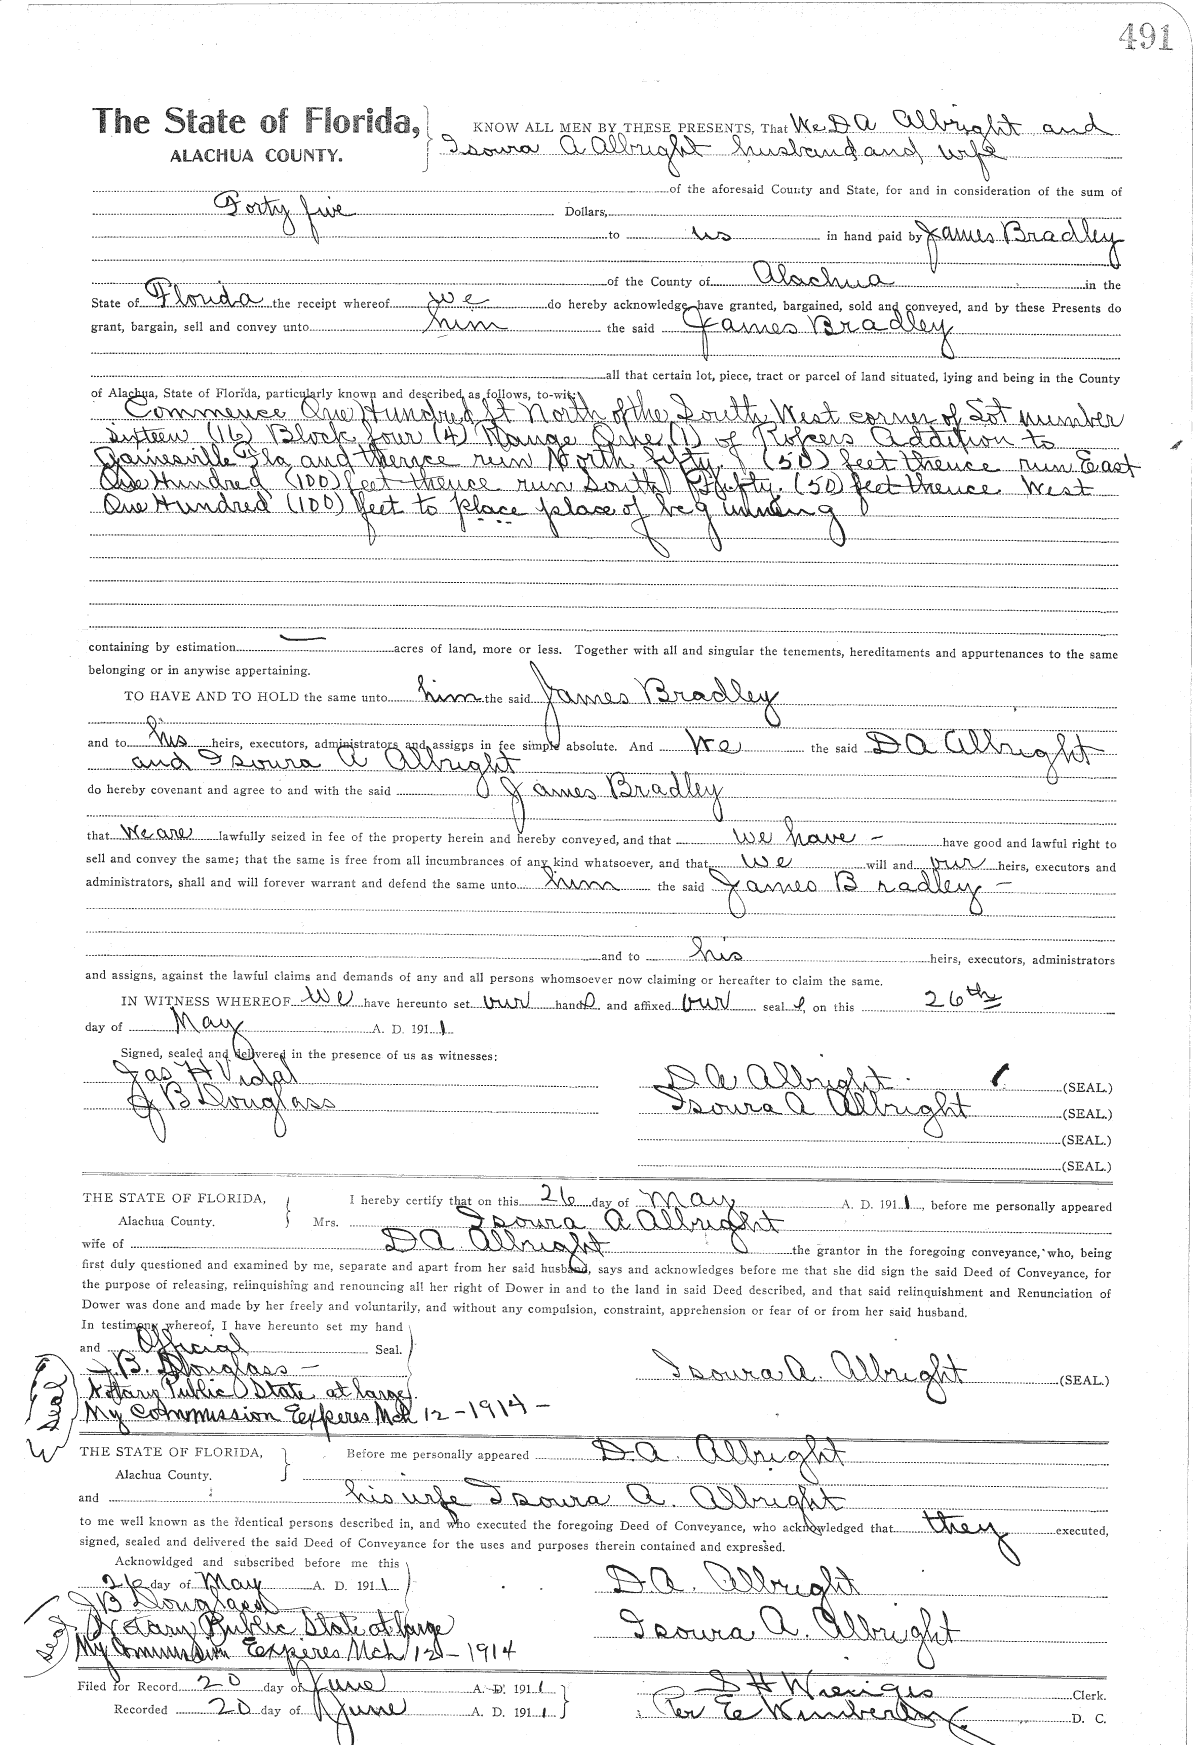 491
The State of Florida, KNOW ALL MEN BY THESE PRESENTS, That We D A Albright and
ALACHUA COUNTY. Isoura A Albright husband and wife
of the aforesaid County and State, for and in consideration of the sum of
Forty five Dollars,
to us in hand paid by James Bradley
of the County of Alachua in the
State of Florida the receipt whereof we do hereby acknowledge, have granted, bargained, sold and conveyed, and by these Presents do
grant, bargain, sell and convey unto him the said James Bradley
all that certain lot, piece, tract or parcel of land situated, lying and being in the County
of Alachua, State of Florida, particularly known and described as follows, to-wit:
Commence One Hundred ft North of the South West corner of Lot number
sixteen (16) Block four (4) Range One (1) of Ropers Addition to
Gainesville Fla and thence run North fifty (50) feet thence run East
One Hundred (100) feet thence run South fifty (50) feet thence West
One Hundred (100) feet to place place of beginning
containing by estimation — acres of land, more or less. Together with all and singular the tenements, hereditaments and appurtenances to the same
belonging or in anywise appertaining.
TO HAVE AND TO HOLD the same unto him the said James Bradley
and to his heirs, executors, administrators and assigns in fee simple absolute. And We the said D A Albright
and Isoura A Albright
do hereby covenant and agree to and with the said James Bradley
that We are lawfully seized in fee of the property herein and hereby conveyed, and that we have - have good and lawful right to
sell and convey the same; that the same is free from all incumbrances of any kind whatsoever, and that we will and our heirs, executors and
administrators, shall and will forever warrant and defend the same unto him the said James Bradley -
and to his heirs, executors, administrators
and assigns, against the lawful claims and demands of any and all persons whomsoever now claiming or hereafter to claim the same.
IN WITNESS WHEREOF We have hereunto set our hand s and affixed our seal s, on this 26th
day of May A. D. 191 1
Signed, sealed and delivered in the presence of us as witnesses:
Jas H Vidal D A Albright (SEAL.)
J B Douglass Isoura A Albright (SEAL.)
(SEAL.)
(SEAL.)
THE STATE OF FLORIDA, I hereby certify that on this 26 day of May A. D. 191 1, before me personally appeared
Alachua County. Mrs. Isoura A Albright
wife of D A Albright the grantor in the foregoing conveyance, who, being
first duly questioned and examined by me, separate and apart from her said husband, says and acknowledges before me that she did sign the said Deed of Conveyance, for
the purpose of releasing, relinquishing and renouncing all her right of Dower in and to the land in said Deed described, and that said relinquishment and Renunciation of
Dower was done and made by her freely and voluntarily, and without any compulsion, constraint, apprehension or fear of or from her said husband.
In testimony whereof, I have hereunto set my hand
and Official Seal.
J B. Douglass - Isoura A. Albright (SEAL.)
Notary Public State at large.
Seal My Commission Experes Mch 12 - 1914 -
THE STATE OF FLORIDA, Before me personally appeared D. A. Albright
Alachua County.
and his wife Isoura A. Albright
to me well known as the identical persons described in, and who executed the foregoing Deed of Conveyance, who acknowledged that they executed,
signed, sealed and delivered the said Deed of Conveyance for the uses and purposes therein contained and expressed.
Acknowldged and subscribed before me this
26 day of May A. D. 191 1 D. A. Albright
J B Douglass
Seal Notary Public State at large Isoura A. Albright
My Commission Expires Mch 12 - 1914
Filed for Record 20 day of June A. D. 191 1 S H Wienges Clerk.
Recorded 20 day of June A. D. 191 1 Per E Wimberly D. C.